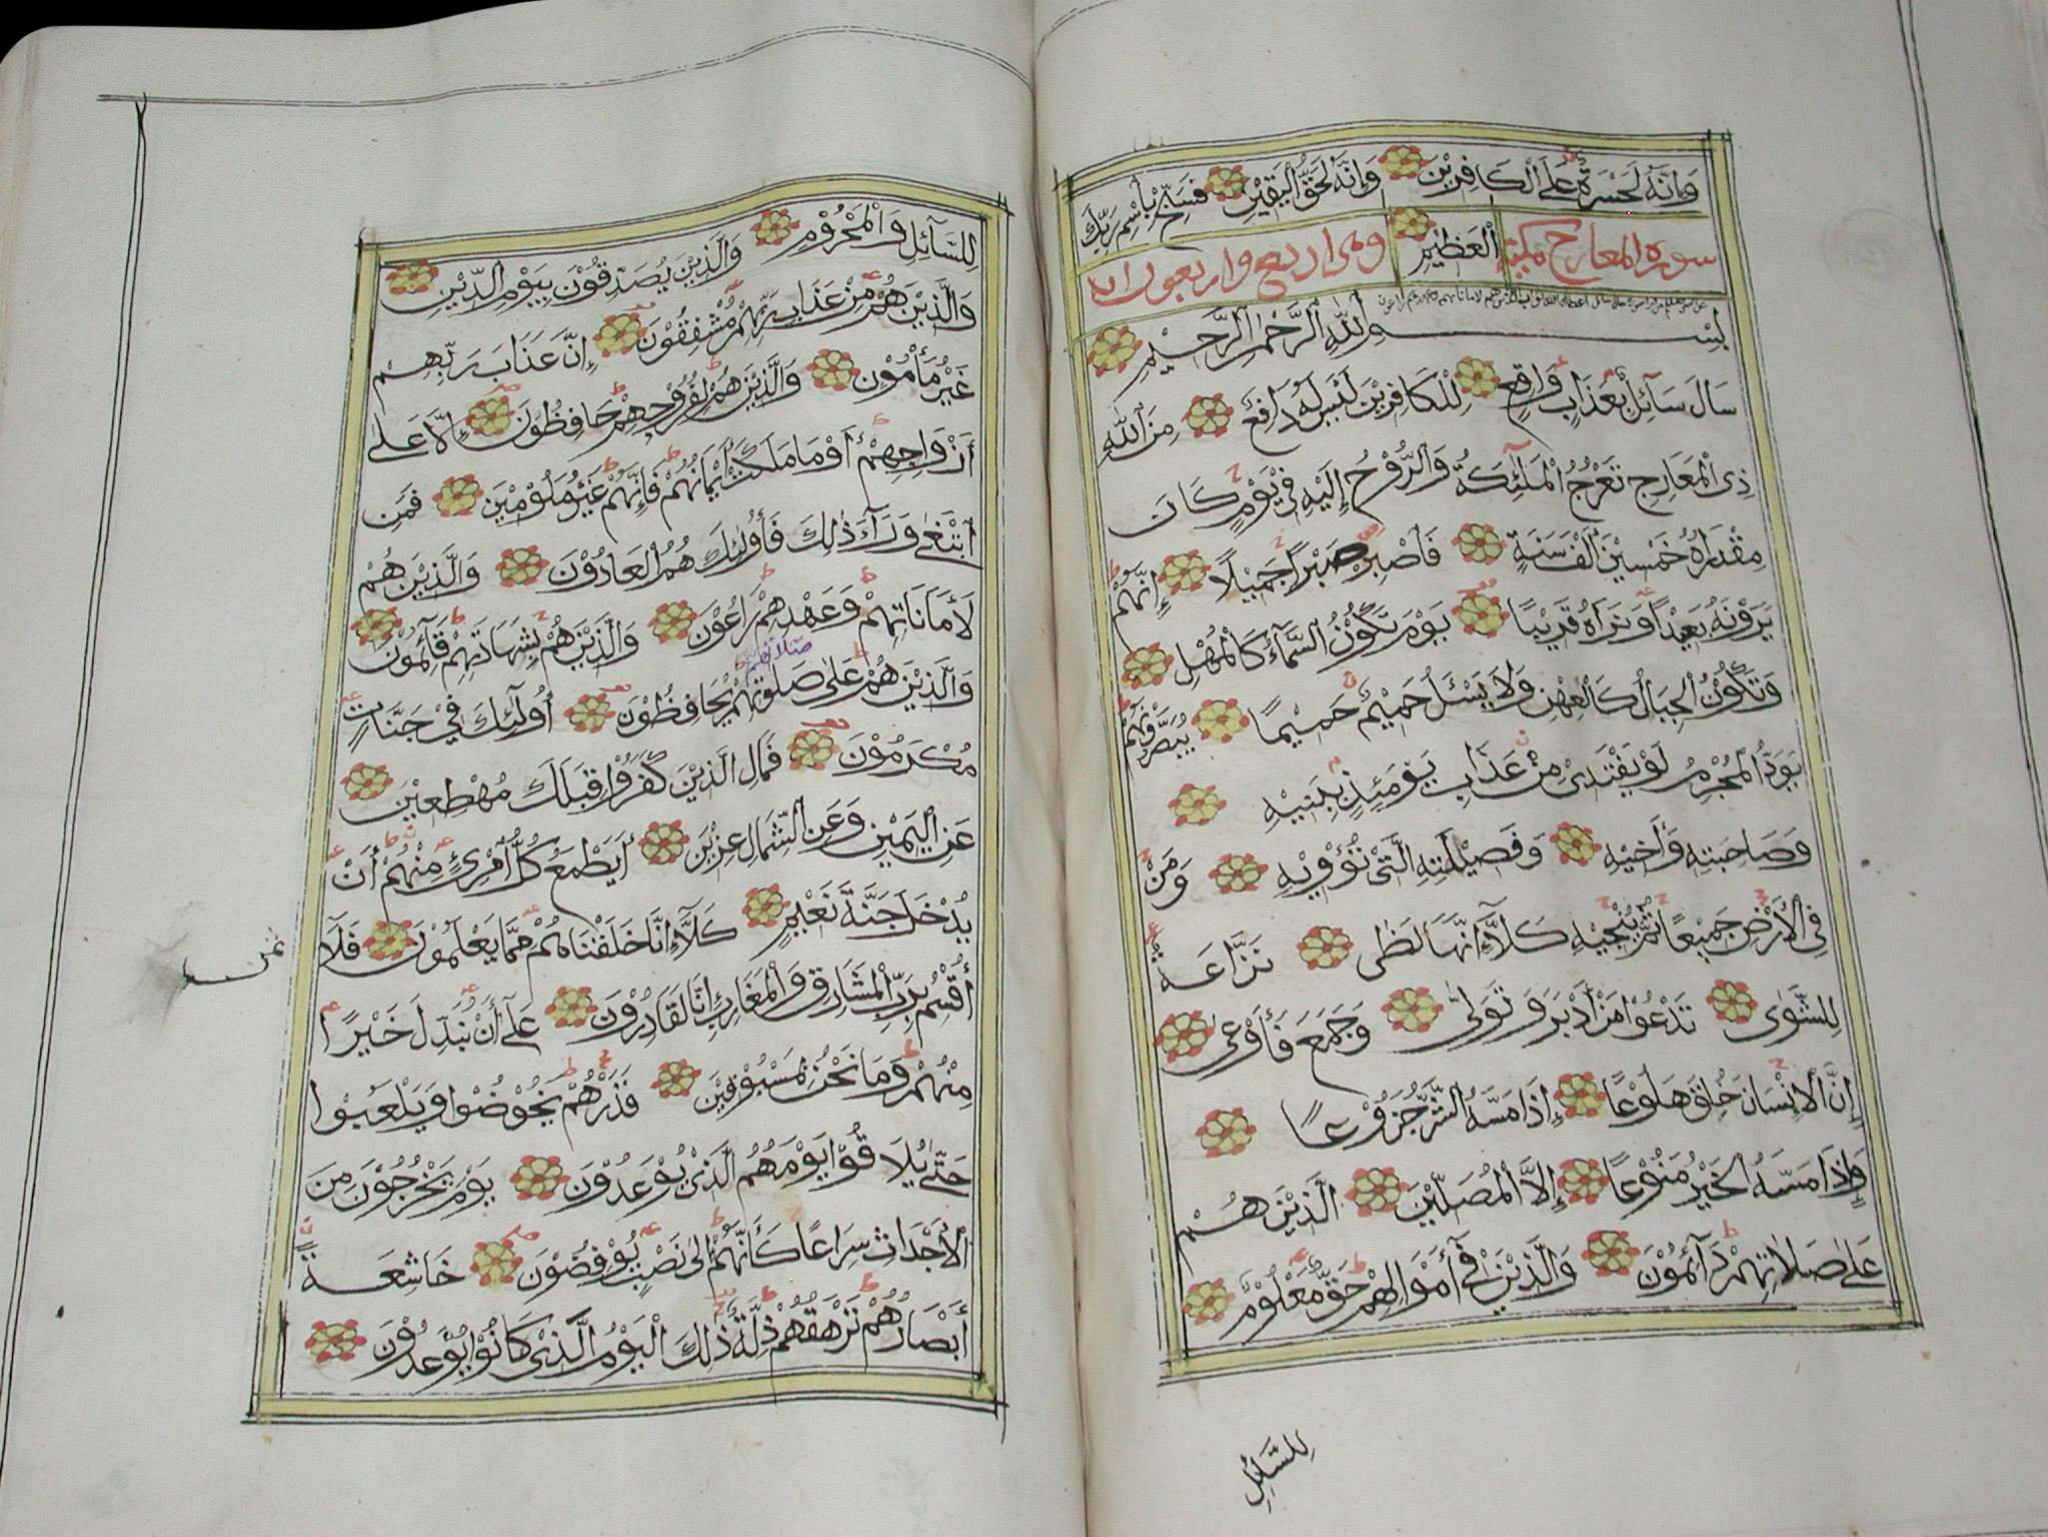 وَإِنَّهُ لَحَسْرَةٌ عَلَى ٱلْكَافِرِيْنَ وَإِنَّهُ لَحَقُّ ٱلْيَقِيْنِ فَسَبِّحْ بِٱسْمِ رَبِّكَ
سورة المعارج مكية ٱلْعَظِيْمِ وهي اربع واربعون اية
بِسْــمِ ٱللَّهِ ٱلرَّحْمٰنِ ٱلرَّحِيْمِ
سَالَ سَآئِلٌ بِعَذَابٍ وَاقِعٍ لِلْكَافِرِيْنَ لَيْسَ لَهُ دَافِعٌ مِنَ ٱللَّهِ
ذِى ٱلْمَعَارِجِ تَعْرُجُ ٱلْمَلٰٓئِكَةُ وَٱلرُّوْحُ إِلَيْهِ فِيْ يَوْمٍ كَانَ
مِقْدَارُهُ خَمْسِيْنَ أَلْفَ سَنَةٍ فَٱصْبِرْ صَبْرًا جَمِيْلًا إِنَّهُمْ
يَرَوْنَهُ بَعِيْدًا وَنَرَاهُ قَرِيْبًا يَوْمَ تَكُوْنُ ٱلسَّمَآءُ كَٱلْمُهْلِ
وَتَكُوْنُ ٱلْجِبَالُ كَٱلْعِهْنِ وَلَا يَسْئَلُ حَمِيْمٌ حَمِيْمًا يُبَصَّرُوْنَهُمْ
يَوَدُّ ٱلْمُجْرِمُ لَوْ يَفْتَدِىْ مِنْ عَذَابِ يَوْمَئِذٍ بِبَنِيْهِ
وَصَاحِبَتِهِ وَأَخِيْهِ وَفَصِيْلَتِهِ ٱلَّتِىْ تُؤْوِيْهِ وَمَنْ
فِى ٱلْأَرْضِ جَمِيْعًا ثُمَّ يُنْجِيْهِ كَلَّآ إِنَّهَا لَظٰى نَزَّاعَةً
لِلشَّوٰى تَدْعُوْا مَنْ أَدْبَرَ وَتَوَلّٰى وَجَمَعَ فَأَوْعٰى
إِنَّ ٱلْإِنْسَانَ خُلِقَ هَلُوْعًا إِذَا مَسَّهُ ٱلشَّرُّ جَزُوْعًا
وَإِذَا مَسَّهُ ٱلْخَيْرُ مَنُوْعًا إِلَّا ٱلْمُصَلِّيْنَ ٱلَّذِيْنَ هُمْ
عَلٰى صَلَاتِهِمْ دَآئِمُوْنَ وَٱلَّذِيْنَ فِىْ أَمْوَالِهِمْ حَقٌّ مَعْلُوْمٌ
لِلسَّآئِلِ
لِلسَّآئِلِ وَٱلْمَحْرُوْمِ وَٱلَّذِيْنَ يُصَدِّقُوْنَ بِيَوْمِ ٱلدِّيْنِ
وَٱلَّذِيْنَ هُمْ مِنْ عَذَابِ رَبِّهِمْ مُشْفِقُوْنَ إِنَّ عَذَابَ رَبِّهِمْ
غَيْرُ مَأْمُوْنٍ وَٱلَّذِيْنَ هُمْ لِفُرُوْجِهِمْ حَافِظُوْنَ إِلَّا عَلٰى
أَزْوَاجِهِمْ أَوْ مَا مَلَكَتْ أَيْمَانُهُمْ فَإِنَّهُمْ غَيْرُ مَلُوْمِيْنَ فَمَنِ
ٱبْتَغٰى وَرَآءَ ذٰلِكَ فَأُولٰٓئِكَ هُمُ ٱلْعَادُوْنَ وَٱلَّذِيْنَ هُمْ
لِأَمَانَاتِهِمْ وَعَهْدِهِمْ رَاعُوْنَ وَٱلَّذِيْنَ هُمْ بِشَهَادَتِهِمْ قَآئِمُوْنَ
صلاتهم
وَٱلَّذِيْنَ هُمْ عَلٰى صَلٰوتِهِمْ يُحَافِظُوْنَ أُولٰٓئِكَ فِيْ جَنَّاتٍ
مُكْرَمُوْنَ فَمَالِ ٱلَّذِيْنَ كَفَرُوْا قِبَلَكَ مُهْطِعِيْنَ
عَنِ ٱلْيَمِيْنِ وَعَنِ ٱلشِّمَالِ عِزِيْنَ أَيَطْمَعُ كُلُّ ٱمْرِئٍ مِنْهُمْ أَنْ
يُدْخَلَ جَنَّةَ نَعِيْمٍ كَلَّآ إِنَّا خَلَقْنَاهُمْ مِمَّا يَعْلَمُوْنَ فَلَآ
ثمن
أُقْسِمُ بِرَبِّ ٱلْمَشَارِقِ وَٱلْمَغَارِبِ إِنَّا لَقَادِرُوْنَ عَلٰٓى أَنْ نُبَدِّلَ خَيْرًا
مِنْهُمْ وَمَا نَحْنُ بِمَسْبُوْقِيْنَ فَذَرْهُمْ يَخُوْضُوْا وَيَلْعَبُوْا
حَتّٰى يُلَاقُوْا يَوْمَهُمُ ٱلَّذِىْ يُوْعَدُوْنَ يَوْمَ يَخْرُجُوْنَ مِنَ
ٱلْأَجْدَاثِ سِرَاعًا كَأَنَّهُمْ إِلٰى نَصْبٍ يُوْفِضُوْنَ خَاشِعَةً
أَبْصَارُهُمْ تَرْهَقُهُمْ ذِلَّةٌ ذٰلِكَ ٱلْيَوْمُ ٱلَّذِىْ كَانُوْا يُوْعَدُوْنَ